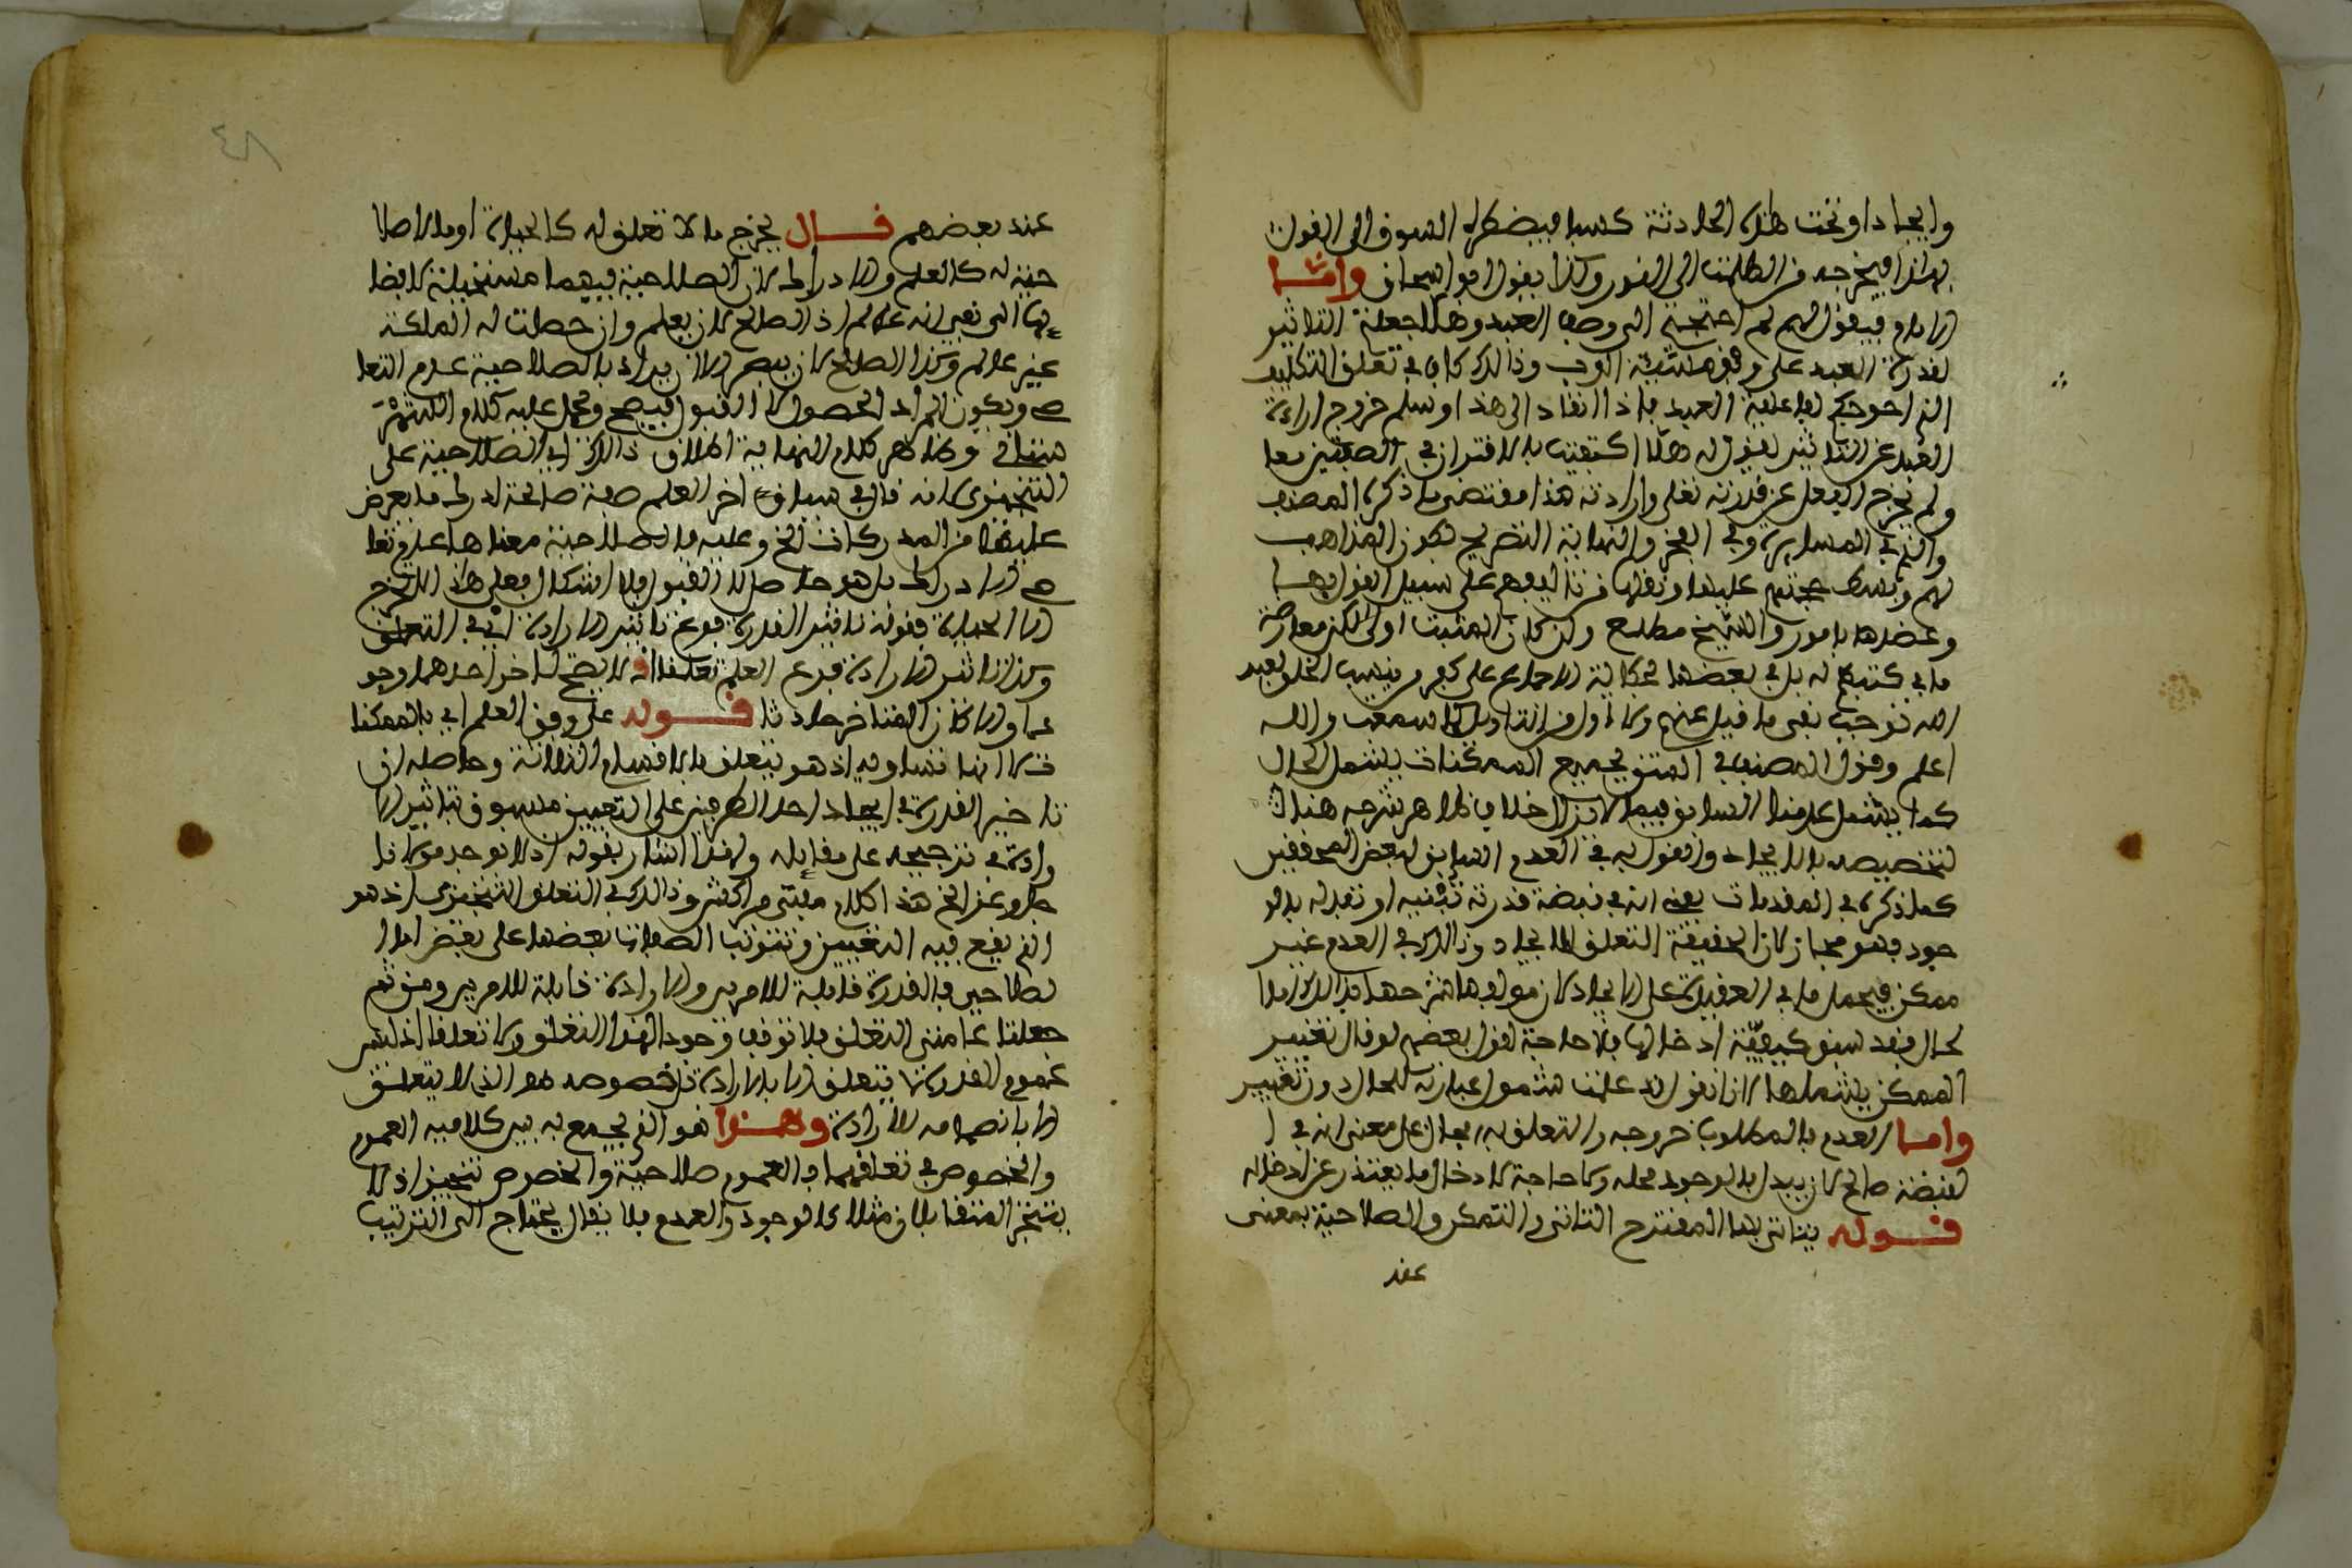 وايجادا ونحت هذه الحادثة كسبا فيضطره السوق الى القول
بهذا فيخرجه من الظلمت الى النور وكذا يقول ابو اسحاق واما
الامام فيقول لهم لم احتجتم الى وصف العبد وهلا جعلتم التاثير
لقدرة العبد على وفق مشيئة الرب وذلك كاف في تعلق التكليف
الذي احوجكم لفاعلية العبد فاذا انقاد الى هذا وسلم خروج ارادة
العبد عن التاثير نقول له هلا اكتفيت بالاقتران في الصفتين معا
ولم تخرج الفعل عن قدرته تعلى وارادته هذا مقتضى ما ذكره المصنف
والذي في المسايرة وفي الفخر والنهاية التصريح بكون المذاهب
لهم وبسط حجتهم عليها ونقلها من تاليفهم على سبيل القول بها
وعضدها بامور والشيخ مطلع ولئن كان المثبت اولى لكن معارضة
ما في كتبهم له بل في بعضها حكاية الاجماع على كفر من ينسب الخلق لغير
الله توجب نفي ما قيل عنهم ولا اول من التاويل كما سمعت والله
اعلم وقول المصنف في المتن بجميع الممكنات يشمل الحال
كما يشمل عدمنا السابق فيما لا يزال خلاف ظاهر شرحه هناك
لتخصيصه بالايجاد والقول به في العدم السابق لبعض المحققين
كما ذكره في المقدمات يعني انه في قبضة قدرته تبقيه او تبدله بالو
جود فهو مجاز لان الحقيقة التعلق الايجاد وذلك في العدم غير
ممكن فيحمل ما في العقيدة على الايجاد لان مولفها شرحها بذلك واما
الحال فقد سبق كيفية ادخالها فلا حاجة لقول بعضهم لو قال تغيير
الممكن يشملها لانا نقول قد علمت شمول عبارته للحال دون تغيير
واما العدم فالمطلوب خروجه والتعلق به يقال على معنى انه في ا
لقبضة صالح لان يبدل بالوجود محله ولا حاجة لادخال ما يعتذر عن ادخاله
قوله يتاتى بها المقترح التاتي والتمكن والصلاحية بمعنى
عند
٤٨
عند بعضهم قال يخرج ما لا تعلق له كالحياة او ما لا صلا
حية له كالعلم والادراك لان الصلاحية فيهما مستحيلة لافضا
يها الى نفي انه عالم اذ الصالح لان يعلم وان حصلت له الملكة
غير عالم وكذا الصالح لان يبصر الا ان يراد بالصلاحية عدم التعا
صي ويكون المراد الحصول لا القبول فيصح ويحمل عليه كلام
هنا وظاهر كلام النهاية اطلاق ذلك اي الصلاحية على
التنجيزي لانه قال في سياق اخر العلم صفة صالحة لدرك ما يعرض
عليها من المدركات الخ وعليه فالصلاحية معناها عدم تعا
صي الادراك بل هو حاصل لا القبول فلا اشكال فعلى هذا لا يخرج
الا الحياة فقوله تاثير القدرة فرع تاثير الارادة اي في التعلق
وكذا تاثير الارادة فرع العلم تعلقا اذ لا يصح تاخر احدهما وجو
دا والا كان المتاخر حادثا قوله على وفق العلم اي بالممكنا
ت لا انها تساويه اذ هو يتعلق بالاقسام الثلاثة وحاصله ان
تاخير القدرة في ايجاد احد الطرفين على التعيين مسبوق بتاثير الا
رادة في ترجيحه على مقابله ولهذا اشار بقوله اذ لا يوجد مولانا
جل وعز الخ هذا كلام مبني وذلك في التعلق التنجيزي اذ هو
الذي يقع فيه التعيين وتترتب الصفات بعضها على بعض اما ا
لصلاحي فالقدرة قابلة للامرين والارادة قابلة للامرين ومن ثم
جعلتا عامتي التعلق فلا توقف وجود لهذا التعلق ولا تعلقا اذ ليس
عموم القدرة يتعلق الا بالارادة خصوصه هو الذي لا يتعلق
الا بانضمامه للارادة وهذا هو الذي يجمع به بين كلاميه العموم
والخصوص في تعلقهما فالعموم صلاحية والخصوص تنجيز اذ لا
يتنجز المتقابلان مثلا كالوجود والعدم فلا يقال يحتاج الى الترتيب